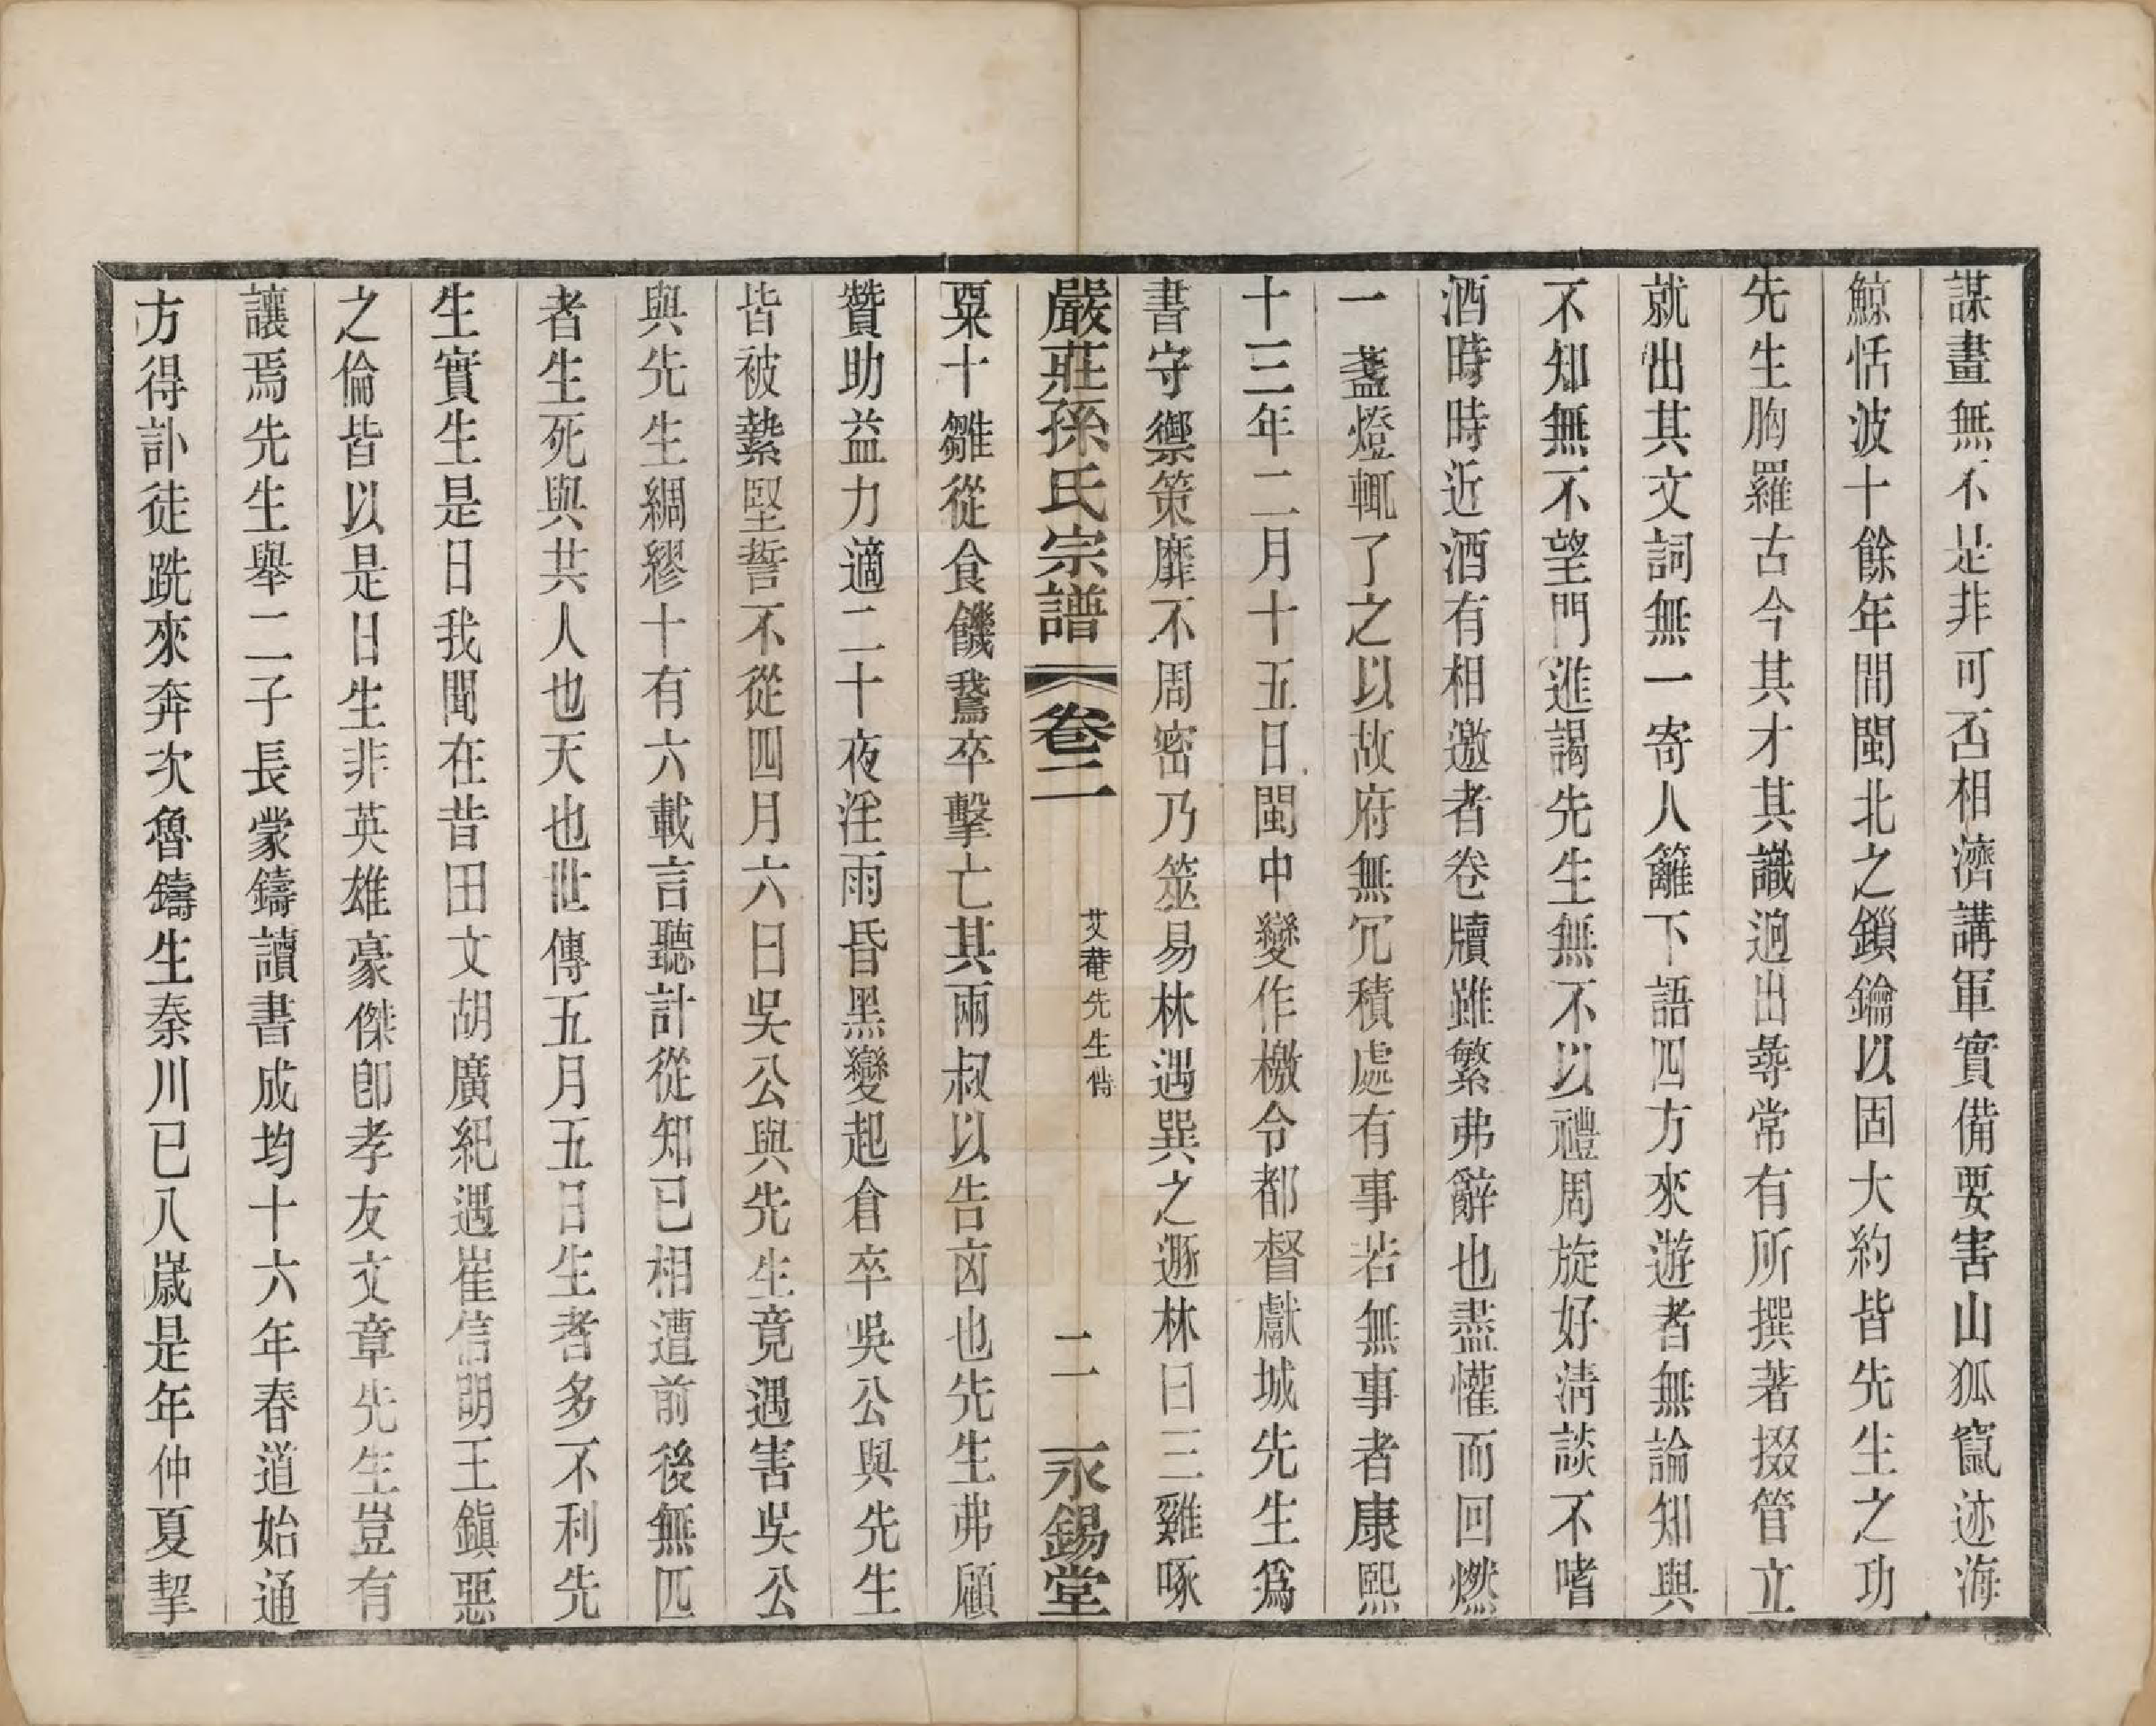 謀畫無不是非可否相濟講軍實備要害山狐竄迹海
鯨恬波十餘年間閩北之鎖鑰以固大約皆先生之功
先生胸羅古今其才其識逈出尋常有所撰著掇管立
就出其文詞無一寄人籬下語四方來遊者無論知與
不知無不望門進謁先生無不以禮周旋好淸談不嗜
酒時時近酒有相邀者卷牘雖繁弗辭也盡懽而回燃
一盞燈輒了之以故府無冗積處有事若無事者康熙
十三年二月十五日閩中變作檄令都督獻城先生爲
書守禦策靡不周密乃筮易林遇巽之遯林曰三雞啄
嚴莊孫氏宗譜 卷二 艾菴先生傳 二 永錫堂
粟十雛從食饑鵞卒擊亡其兩叔以告㐫也先生弗顧
贊助益力適二十夜淫雨昏黑變起倉卒吳公與先生
皆被縶堅誓不從四月六日吳公與先生竟遇害吳公
與先生綢繆十有六載言聽計從知已相遭前後無匹
者生死與共人也天也世傳五月五日生者多不利先
生實生是日我聞在昔田文胡廣紀遇崔信明王鎭惡
之倫皆以是日生非英雄豪傑卽孝友文章先生豈有
讓焉先生舉二子長蒙鑄讀書成均十六年春道始通
方得訃徒跣來奔次魯鑄生秦川已八歲是年仲夏挈